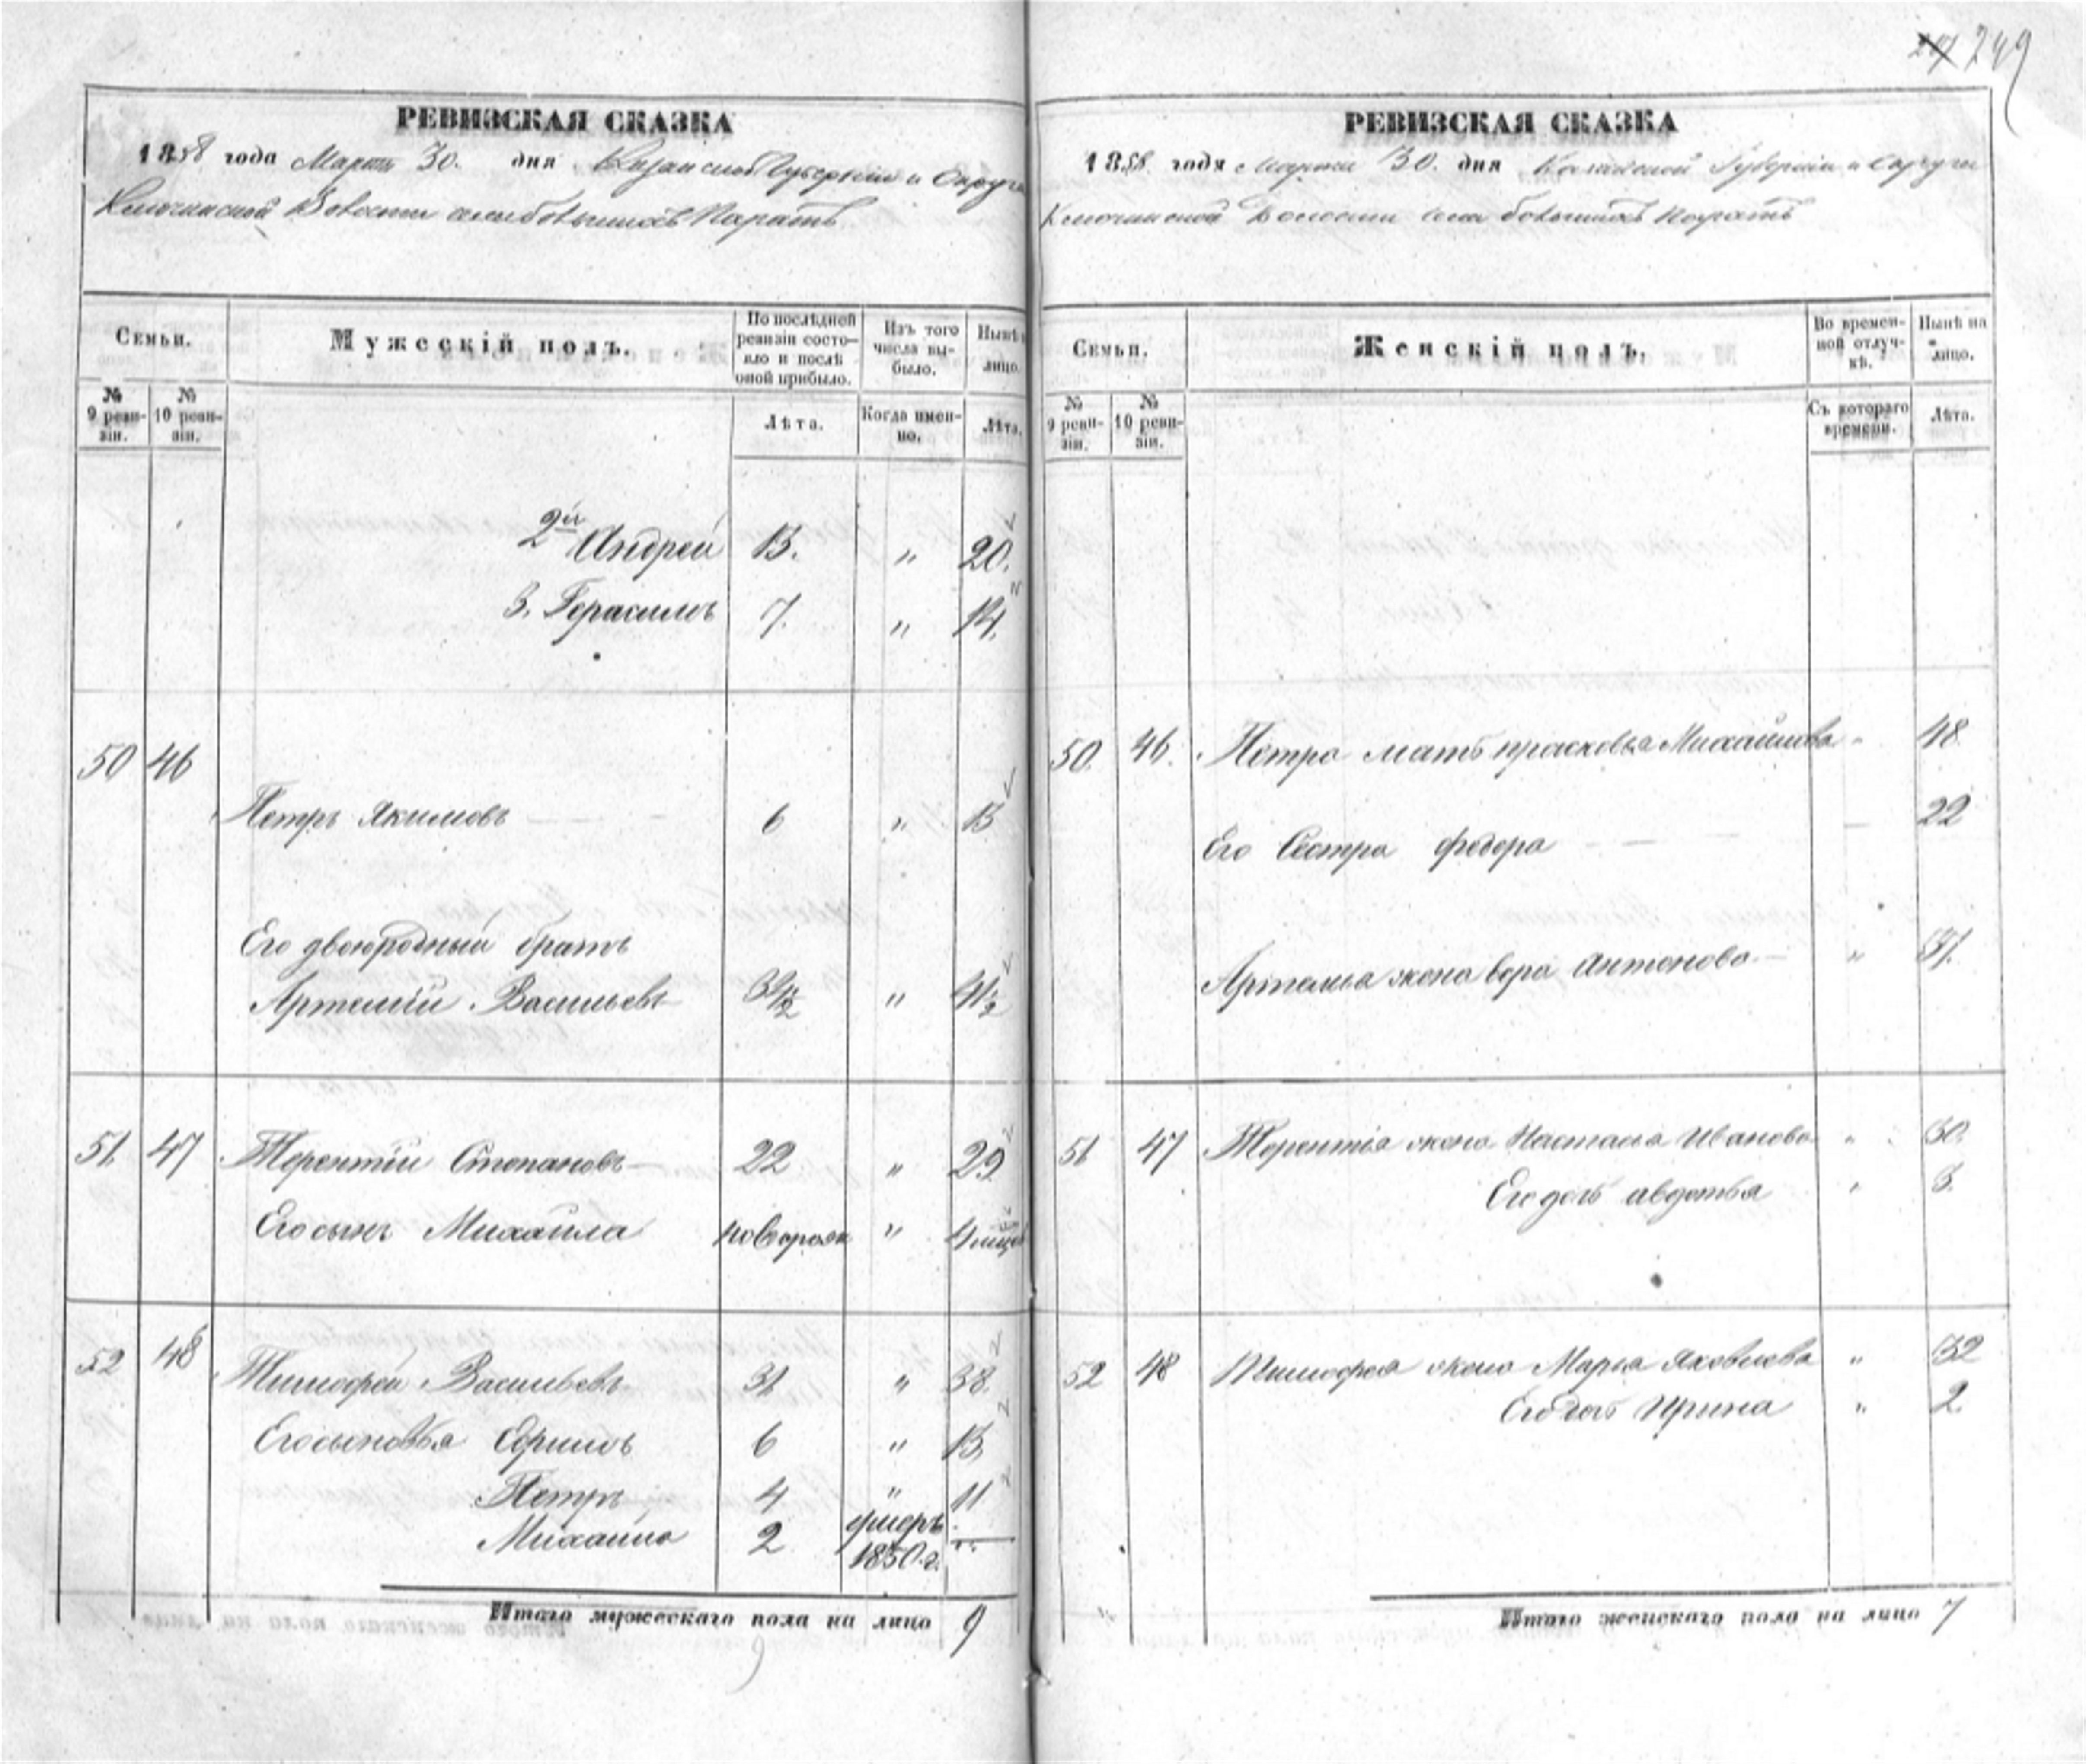 249
РЕВИЗСКАЯ СКАЗКА
1858 года Марта 30. дня Казанской Губерніи и Округа
Ключинской Волости села большихъ Паратъ
Семьи.
Мужескій полъ.
По послѣдней ревизіи состояло и послѣ оной прибыло.
Изъ того числа выбыло.
Нынѣ лицо.
№ 9 ревизіи.
№ 10 ревизіи.
Лѣта.
Когда именно.
Лѣта.
2й Андрей 13. " 20.
3. Герасимъ 7. " 14.
50 46
Петръ Якимовъ 6 " 13
Его двоюродный братъ
Артемій Васильевъ 34½ " 41½
51 47 Терентій Степановъ 22 " 29
Его сынъ Михайла новорож "
52 48 Тимофей Васильевъ 31 " 38
Его сыновья Ефимъ 6 " 13
Петръ 4 " 11
Михайло 2 умеръ 1850.г.
Итого мужескаго пола на лицо 9
РЕВИЗСКАЯ СКАЗКА
1858. года Марта 30. дня Казанской Губерніи и Округи
Ключинской Волости села большихъ Паратъ
Семьи.
Женскій полъ.
Во временной отлучкѣ.
Нынѣ на лицо.
№ 9 ревизіи.
№ 10 ревизіи.
Съ котораго времени.
Лѣта.
50. 46. Петра мать прасковья Михайлова " 48
Его Сестра федора 22
Артемья жена вера Антонова "
51 47 Терентія жена Настасья Иванова " 30.
Его дочь авдотья " 3.
52 48 Тимофея жена Марья Яковлева " 32
Его дочь Ирина " 2.
Итого женскаго пола на лицо 7